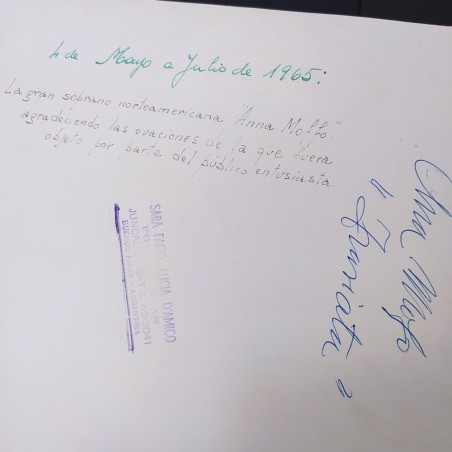 4 de Mayo a Julio de 1965:
La gran soprano norteamericana "Anna Moffo"
agradeciendo las ovaciones de la que fuera
objeto por parte del público entusiasta.
Anna Moffo
"Traviata"
SARA FACIO, ALICIA D'AMICO
BUENOS AIRES - ARGENTINA